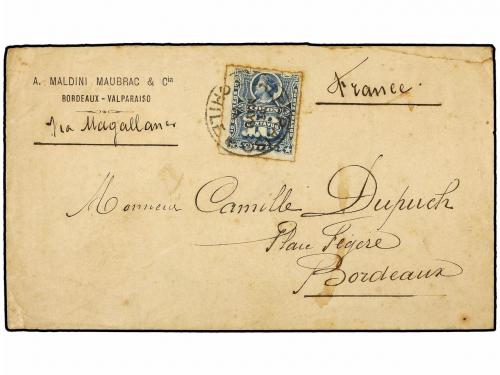 A. MALDINI MAUBRAC & Cia
BORDEAUX - VALPARAISO
Via Magallanes
France.
CHILE
CENTAVOS
Monsieur Camille Dupuch
Place Fégère
Bordeaux